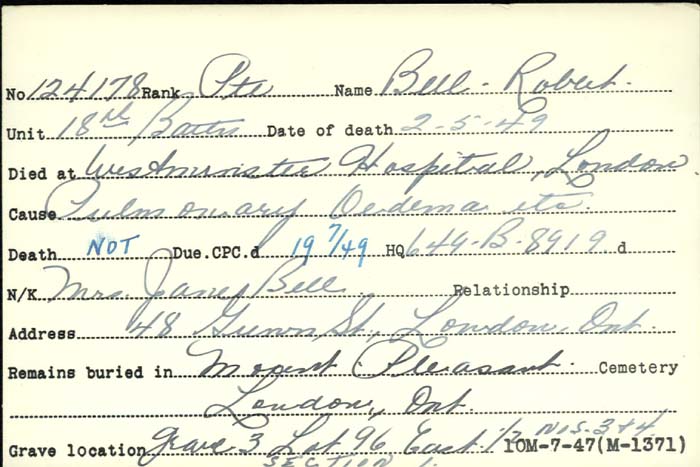 No 124178 Rank Pte Name Bell - Robert.
Unit 18th Battn Date of death 2-5-49
Died at Westminster Hospital, London
Cause Pulmonary Oedema etc.
Death NOT Due.CPC.d 19 7/49 HQ 649-B-8919 d
N/K Mrs. Janey Bell Relationship
Address 48 Gunn St., London, Ont.
Remains buried in Mount Pleasant Cemetery
London, Ont.
Grave location Grave 3 Lot 96 East 1/2 NOS. 3+4 10M-7-47(M-1371)
SECTION 1.